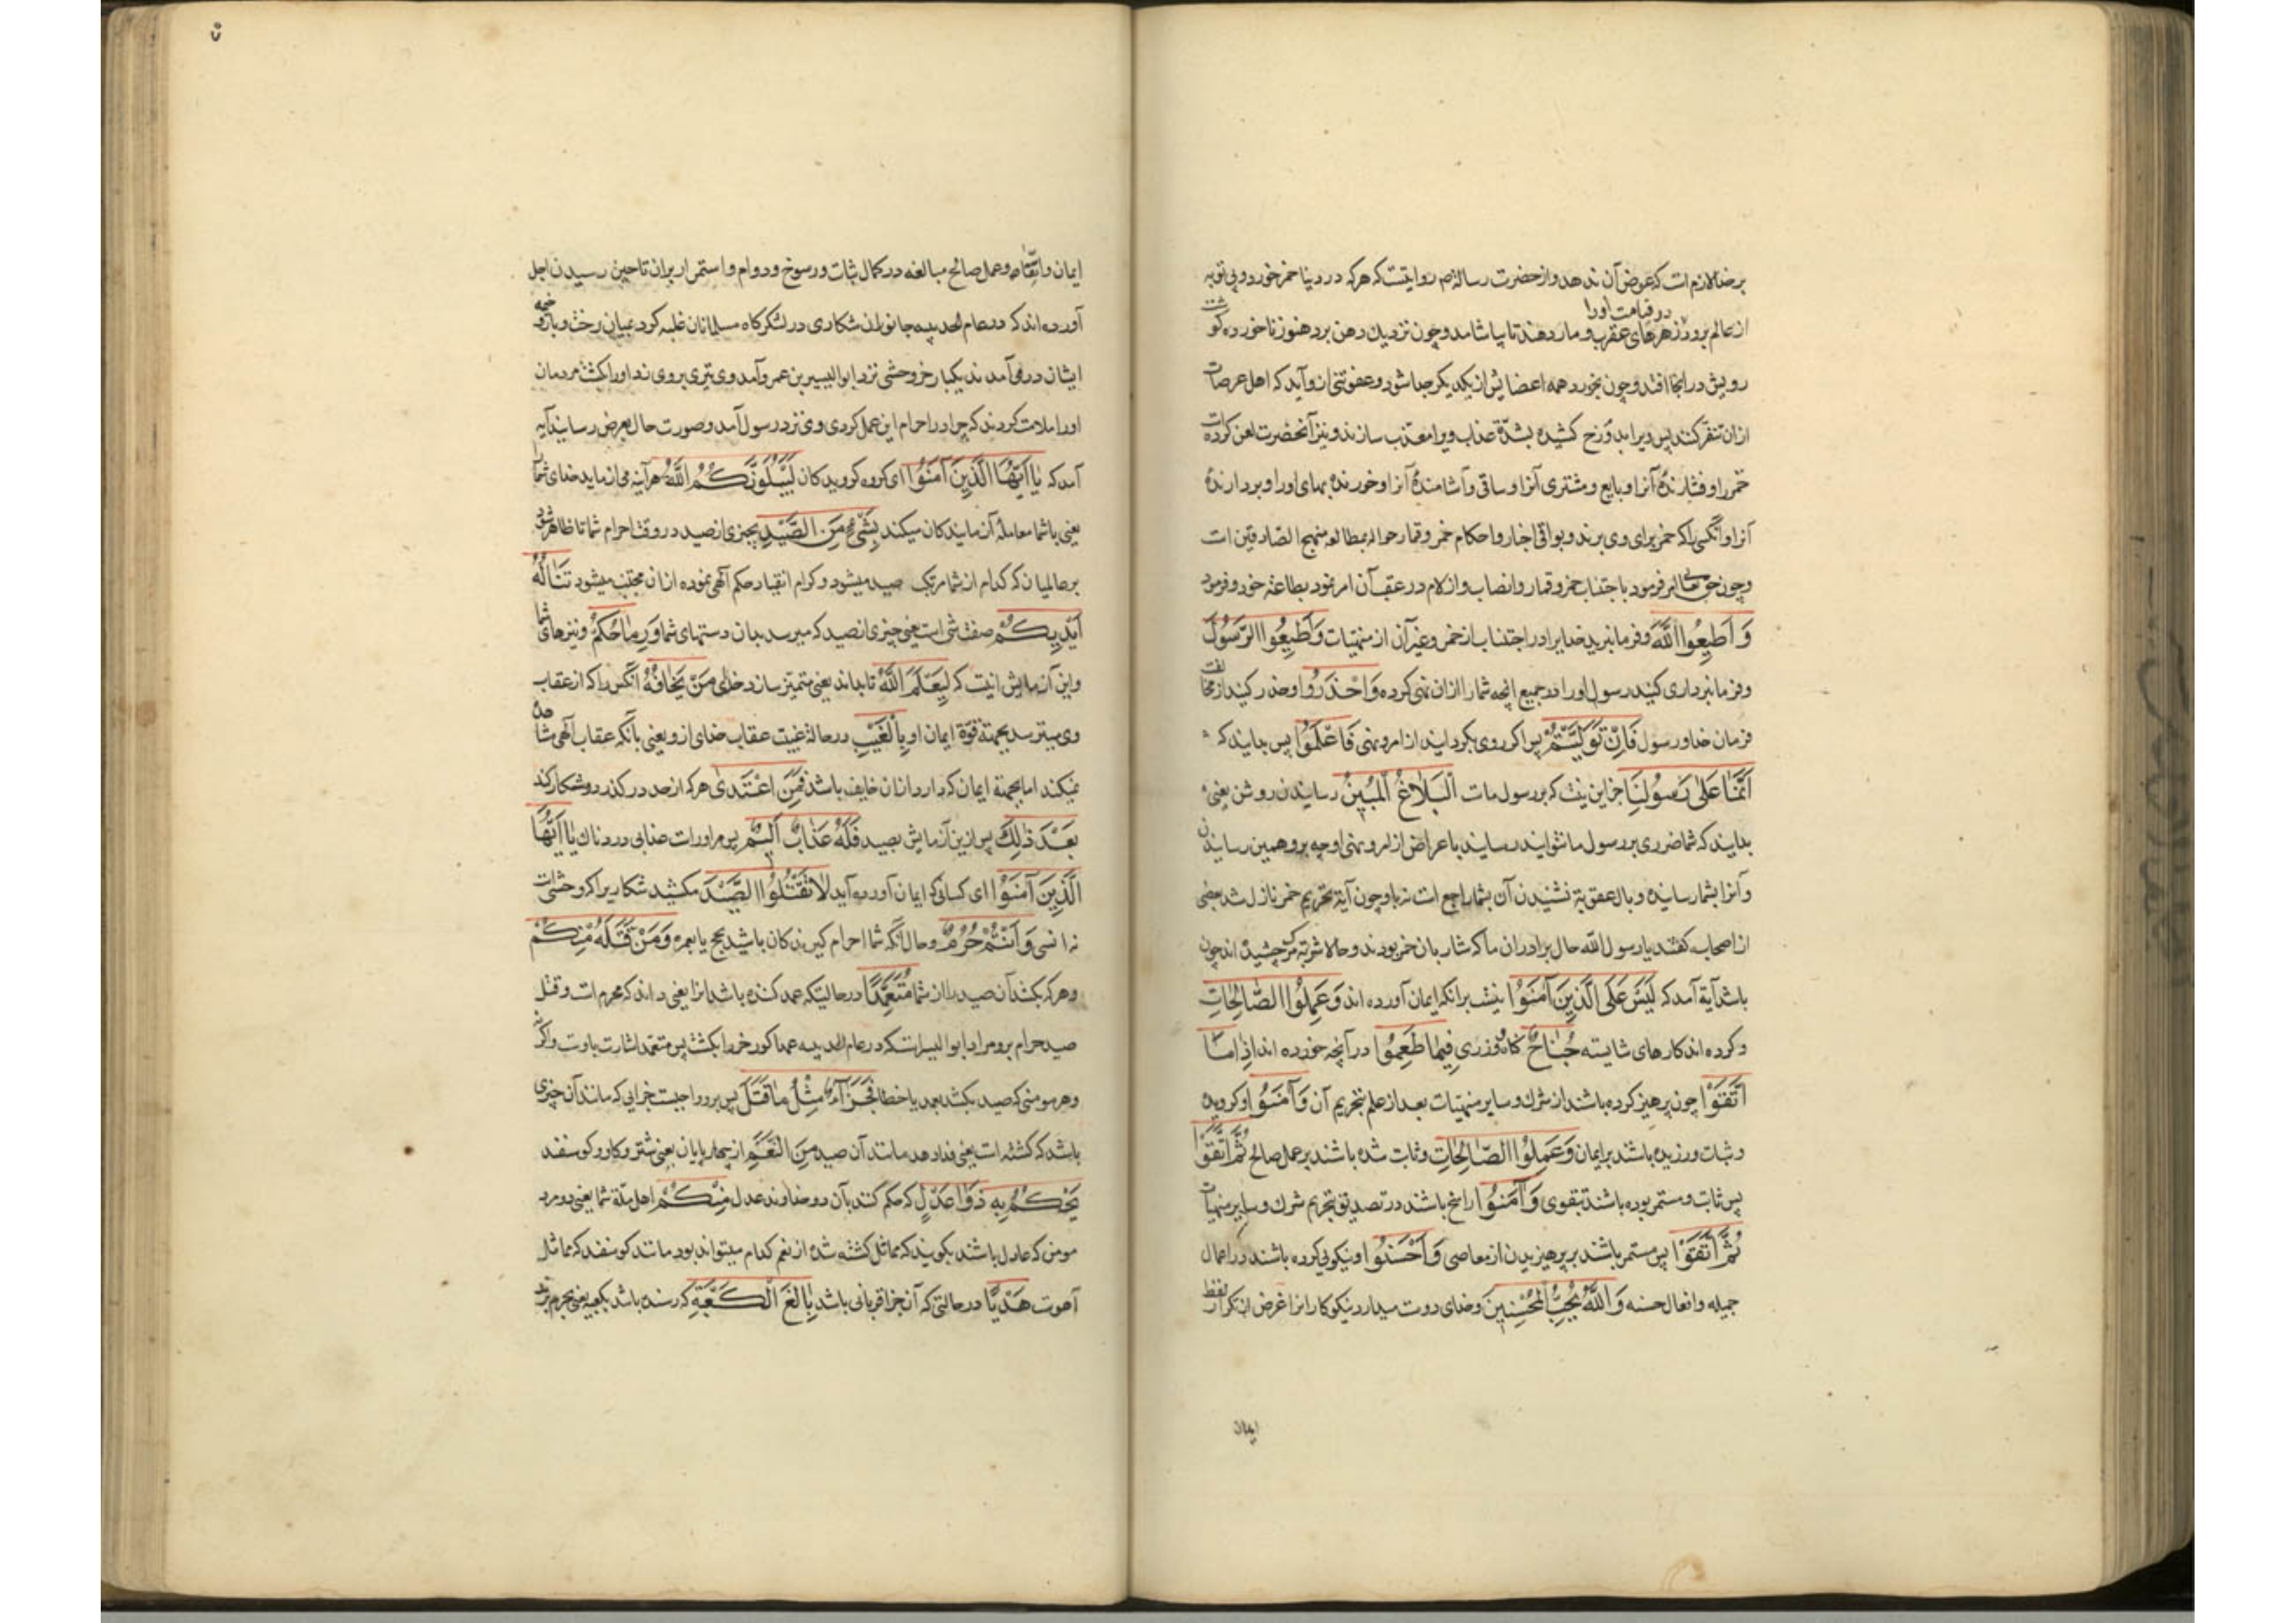 بر خدا لازم است که عوض آن ندهد و از حضرت رسالة ص روایتست که هرکه در دنیا خمر خورد و بی توبه
از عالم برود در قیامت او را زهرهای عقرب و مار دهند تا بیاشامد و چون نزدیک دهن برد هنوز ناخورده گوشت
رویش در انجا افتد و چون بخورد همه اعضایش از یکدیگر جدا شود و عفونتی ازو آید که اهل عرصات
ازان تنفر کنند پس ویرا بدوزخ کشیده بشدّة عذاب ویرا معذب سازند و نیز آنحضرت لعن کرده است
خمر را و فشارندهٔ آنرا و بایع و مشتری آنرا و ساقی و آشامندهٔ آنرا و خورندهٔ بهای او را و بردارندهٔ
آنرا و آنکسی را که خمر برای وی برند و بواقی اخبار و احکام خمر و قمار حواله بمطالعه منهج الصادقین است
و چون حق تعالی امر فرمود باجتناب خمر و قمار و انصاب و ازلام در عقب آن امر نمود بطاعة خود و فرمود
وَ أَطِیعُوا اللَّهَ و فرمان برید خدایرا در اجتناب از خمر و غیر آن از منهیات وَ أَطِیعُوا الرَّسُولَ
و فرمانبرداری کنید رسول او را در جمیع انچه شما را ازان نهی کرده وَ احْذَرُوا و حذر کنید از مخالفت
فرمان خدا و رسول فَإِنْ تَوَلَّیْتُمْ پس اگر روی بگردانید از امر و نهی فَاعْلَمُوا پس بدانید که
أَنَّمَا عَلَی رَسُولِنَا جز این نیست که بر رسول ماست الْبَلاغُ الْمُبِینُ رسانیدن روشن یعنی
بدانید که شما ضرری بر رسول ما نتوانید رسانید باعراض از امر و نهی او چه برو همین رسانیدن
و آنرا بشما رسانیده و بال عقوبة نشنیدن آن بشما راجع است نه باو چون آیة تحریم خمر نازل شد بعضی
از اصحاب گفتند یا رسول الله حال برادران ما که شاربان خمر بودند و حالا شربة مرگ چشیده اند چون
باشد آیة آمد که لَیْسَ عَلَی الَّذِینَ آمَنُوا نیست بر انکه ایمان آورده اند وَ عَمِلُوا الصَّالِحَاتِ
و کرده اند کارهای شایسته جُنَاحٌ گناه و وزری فِیمَا طَعِمُوا در آنچه خورده اند إِذَا مَا
اتَّقَوْا چون پرهیز کرده باشند از شرک و سایر منهیات بعد از علم بتحریم آن وَ آمَنُوا و گرویده
و ثبات ورزیده باشند بر ایمان وَ عَمِلُوا الصَّالِحَاتِ و ثابت شده باشند بر عمل صالح ثُمَّ اتَّقَوْا
پس ثابت و مستمر بوده باشند بتقوی وَ آمَنُوا راسخ باشند در تصدیق بتحریم شرک و سایر منهیات
ثُمَّ اتَّقَوْا پس مستمر باشند بر پرهیزیدن از معاصی وَ أَحْسَنُوا و نیکوئی کرده باشند در اعمال
جمیله و افعال حسنه وَ اللَّهُ یُحِبُّ الْمُحْسِنِینَ و خدای دوست میدارد نیکوکارانرا غرض از تکرار لفظ
ایمان
ایمان و اتقاء و عمل صالح مبالغه در کمال ثبات و رسوخ و دوام و استمرار بران تا حین رسیدن اجل
آورده اند که در عام الحدیبیه جانوران شکاری در لشکرگاه مسلمانان غلبه کرد بمیان رخت و بار و خیمه
ایشان در می آمدند یکبار خر وحشی نزد ابوالیسیر بن عمرو آمد وی تیری بروی زد او را بکشت مردمان
او را ملامت کردند که چرا در احرام این عمل کردی وی نزد رسول آمد و صورت حال بعرض رسانید آیه
آمد که یَا أَیُّهَا الَّذِینَ آمَنُوا ای گروه گرویدگان لَیَبْلُوَنَّکُمُ اللَّهُ هرآینه می ازماید خدای شما را
یعنی با شما معامله آزمایندگان میکند بِشَیْءٍ مِنَ الصَّیْدِ بچیزی از صید در وقت احرام شما تا ظاهر شود
بر عالمیان که کدام از شما مرتکب صید میشود و کدام انقیاد حکم آلهی نموده ازان مجتنب میشود تَنَالُهُ
أَیْدِیکُمْ صفت شیء است یعنی چیزی از صید که میرسد بدان دستهای شما وَ رِمَاحُکُمْ و نیزهای شما
و این آزمایش انیت که لِیَعْلَمَ اللَّهُ تا بداند یعنی متمیز سازد خدای مَنْ یَخَافُهُ آنکس را که از عقاب
وی میترسد بجهة قوّة ایمان او بِالْغَیْبِ در حالة غیبت عقاب خدای ازو یعنی با آنکه عقاب آلهی مشاهده
نمیکند اما بجهة ایمان که دارد ازان خایف باشد فَمَنِ اعْتَدَی هرکه از حد درگذرد و شکار کند
بَعْدَ ذَلِکَ پس ازین آزمایش بصید فَلَهُ عَذَابٌ أَلِیمٌ پس مر او راست عذابی دردناک یَا أَیُّهَا
الَّذِینَ آمَنُوا ای کسانی که ایمان آورده اید لا تَقْتُلُوا الصَّیْدَ مکشید شکاریرا که وحشیست
نه انسی وَ أَنْتُمْ حُرُمٌ و حال آنکه شما احرام گیرندگان باشید بحج یا بعمره وَ مَنْ قَتَلَهُ مِنْکُمْ
و هرکه بکشد آن صید را از شما مُتَعَمِّدًا در حالتیکه عمد کننده باشد انرا یعنی داند که محرم است و قتل
صید حرام برو مراد ابوالیسر است که در عام الحدیبیه عمدا گورخر را بکشت پس متعمد اشارت باوست و اگر نه
و هر مومنی که صید بکشد بعمد یا خطا فَجَزَاءٌ مِثْلُ مَا قَتَلَ پس برو واجبست جزایی که مانند آن چیزی
باشد که کشته است یعنی فدا دهد مانند آن صید مِنَ النَّعَمِ از چهارپایان یعنی شتر و گاو و گوسفند
یَحْکُمُ بِهِ ذَوَا عَدْلٍ که حکم کنند بآن دو خداوند عدل مِنْکُمْ اهل ملّة شما یعنی دو مرد
مومن که عادل باشند بگویند که مماثل کشته شده از نعم کدام میتواند بود مانند گوسفند که مماثل
آهوست هَدْیًا در حالتی که آن جزا قربانی باشد بَالِغَ الْکَعْبَةِ که رسنده باشد بکعبه یعنی بحرم برند